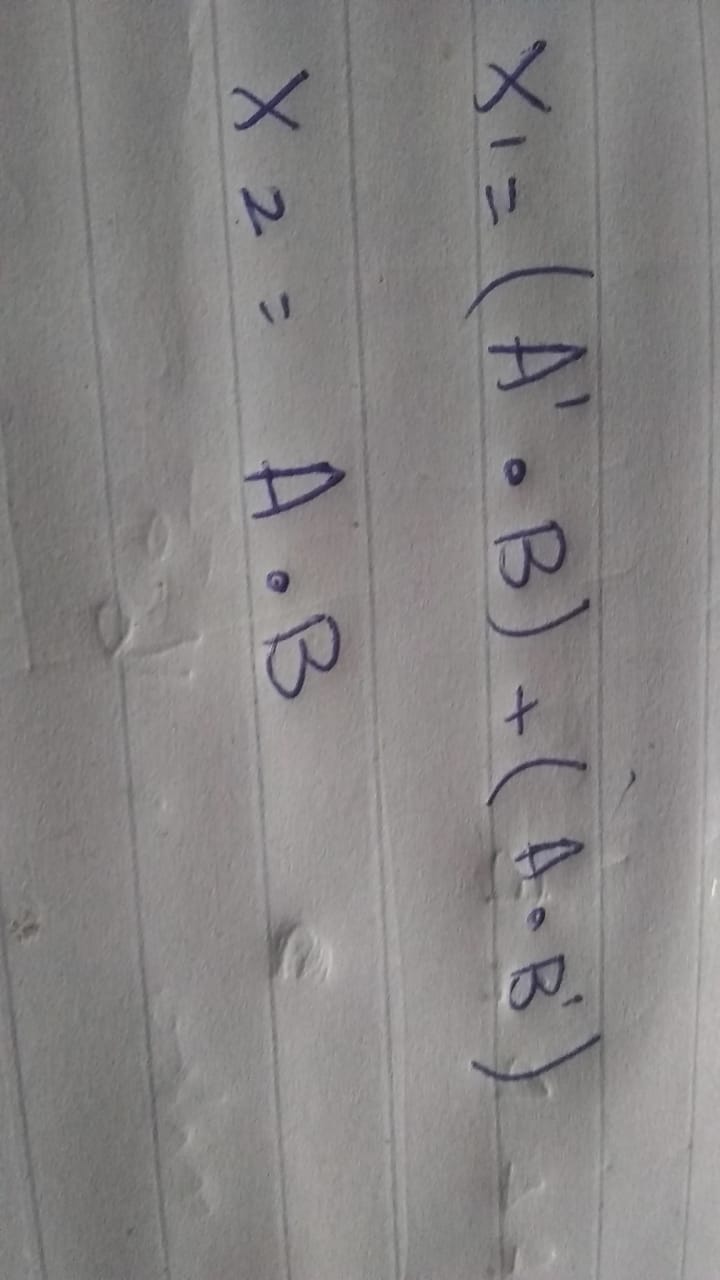 X1 = (A' . B) + (A . B')
X2 = A . B